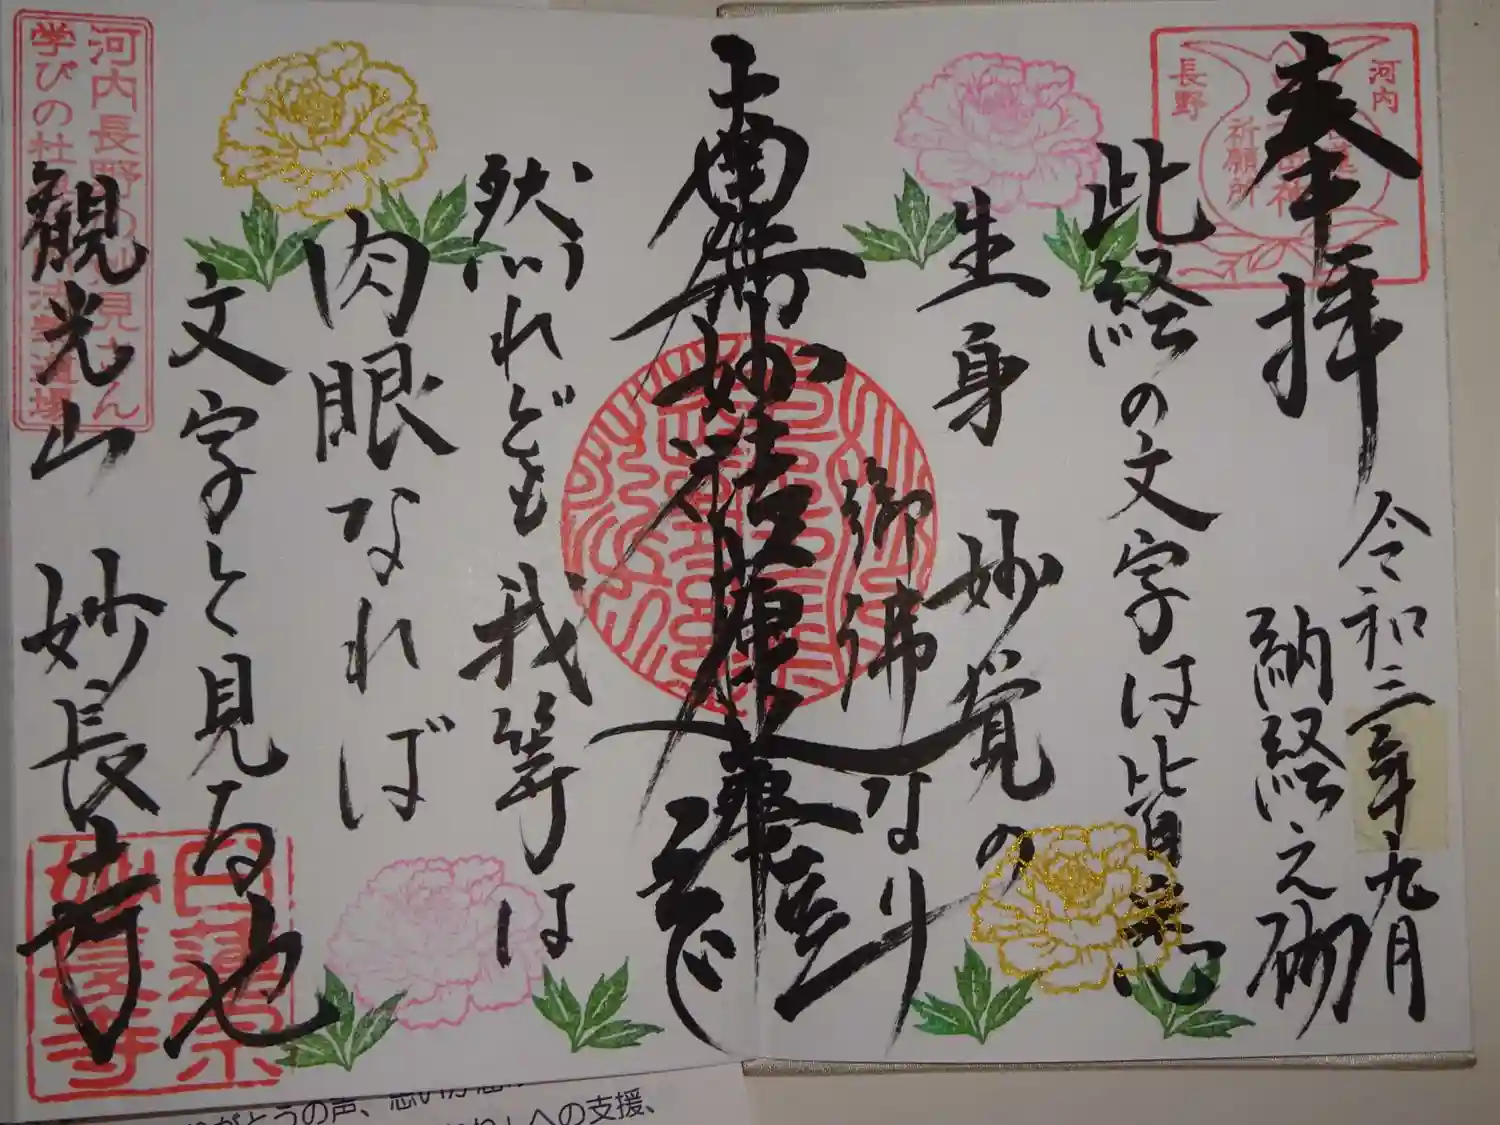 奉拝
河内
長野
祈願所
令和三年九月
納経之砌
此経の文字は皆悉
生身 妙覚の
御佛なり
南無妙法蓮華経
然れども我等は
肉眼なれば
文字と見る也
観光山 妙長寺
河内長野の妙見さん
学びの杜
道場
日蓮宗
妙長寺
の声、
への支援、